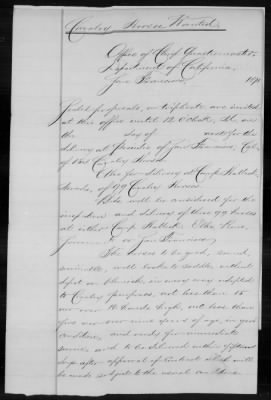 Cavalry Horses Wanted.
Office of Chief Quartermaster
Department of California,
San Francisco, 187
Sealed proposals, in triplicate, are invited
at this office until 12 O'clock, M. on
the day of next for the
delivery at Presidio of San Francisco, Cal,
of Cavalry Horses.
Also for delivery at Camp Halleck,
Nevada, of 99 Cavalry Horses.
Bids will be considered for the
inspection and delivery of these 99 horses
at either Camp Halleck, Elko,
or San Francisco.
The horses to be good, sound,
serviceable, well broke to saddle, without
defect or blemish, in every way adapted
to Cavalry purposes, not less than 15
nor over 16 hands high, not less than
five nor over nine years of age, in good
condition, and ready for immediate
service, and to be delivered within fifteen
days after approval of contract which will
be made subject to the usual conditions